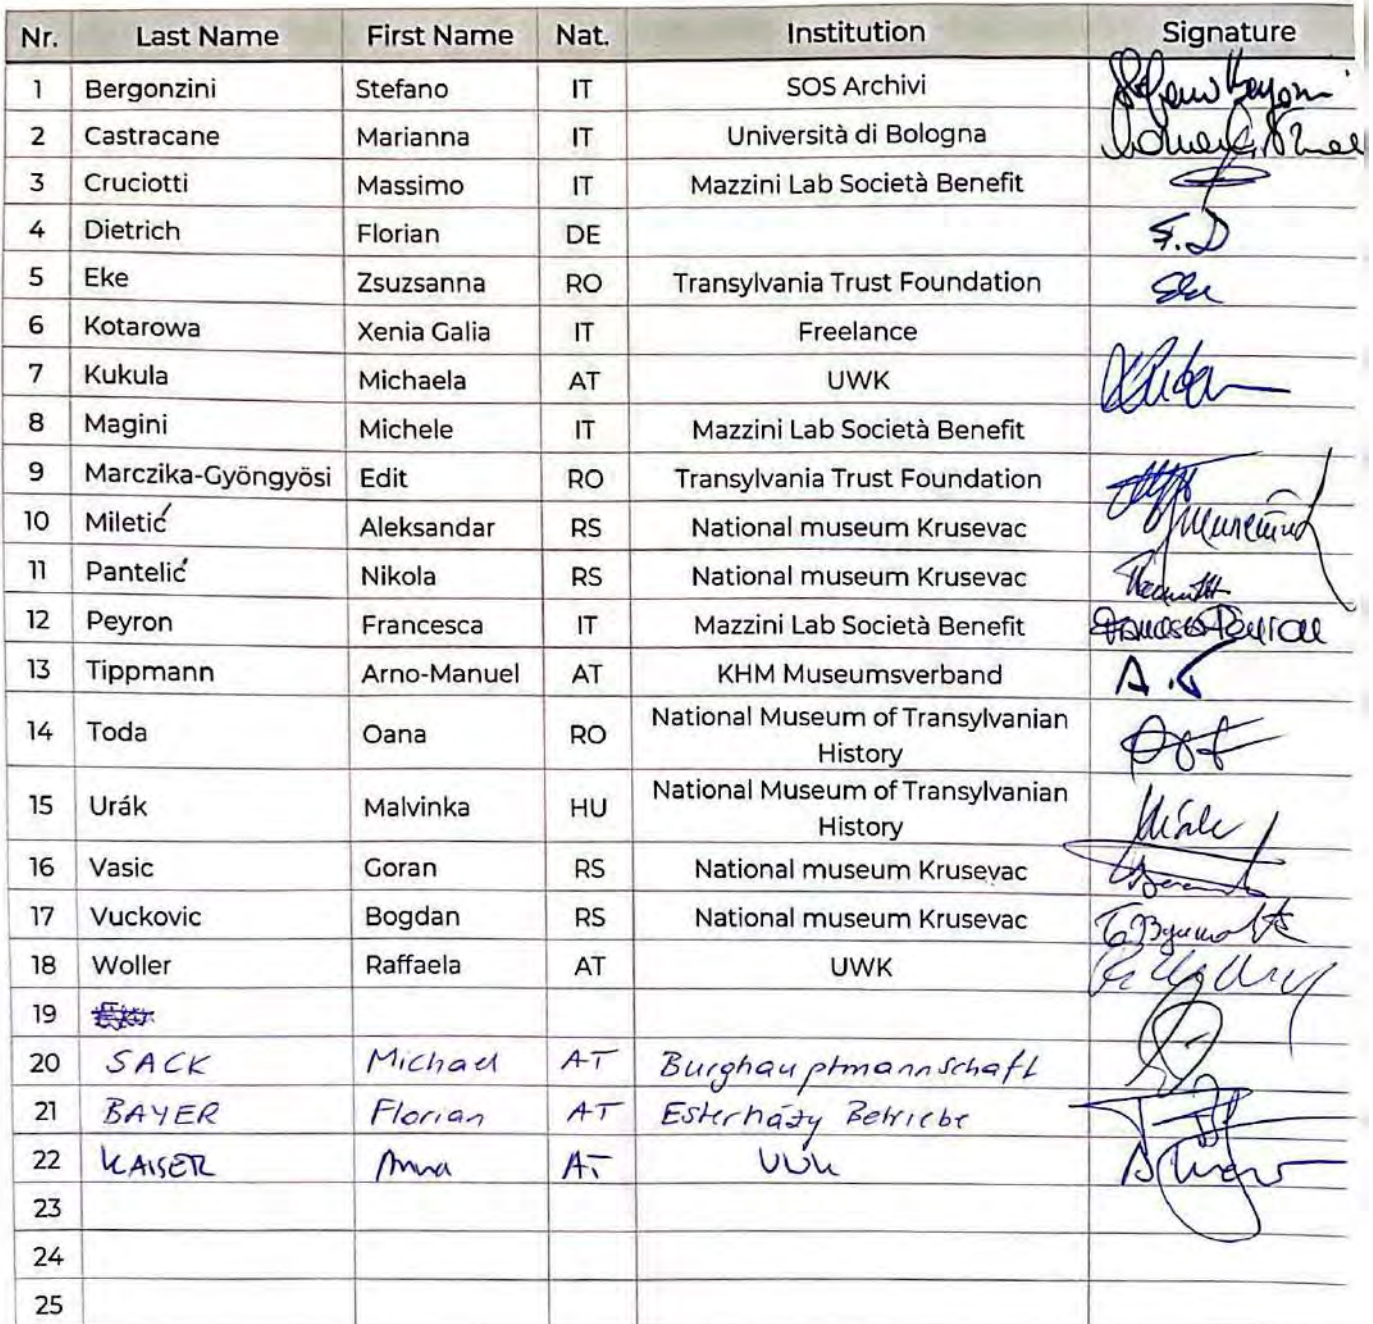 Nr. Last Name First Name Nat. Institution Signature
1 Bergonzini Stefano IT SOS Archivi
2 Castracane Marianna IT Università di Bologna
3 Cruciotti Massimo IT Mazzini Lab Società Benefit
4 Dietrich Florian DE F.D
5 Eke Zsuzsanna RO Transylvania Trust Foundation
6 Kotarowa Xenia Galia IT Freelance
7 Kukula Michaela AT UWK
8 Magini Michele IT Mazzini Lab Società Benefit
9 Marczika-Gyöngyösi Edit RO Transylvania Trust Foundation
10 Miletić Aleksandar RS National museum Krusevac
11 Pantelić Nikola RS National museum Krusevac
12 Peyron Francesca IT Mazzini Lab Società Benefit
13 Tippmann Arno-Manuel AT KHM Museumsverband A.T
14 Toda Oana RO National Museum of Transylvanian
History
15 Urák Malvinka HU National Museum of Transylvanian
History
16 Vasic Goran RS National museum Krusevac
17 Vuckovic Bogdan RS National museum Krusevac
18 Woller Raffaela AT UWK
19
20 SACK Michael AT Burghauptmannschaft
21 BAYER Florian AT Esterházy Betriebe
22 KAISER Anna AT UWK
23
24
25